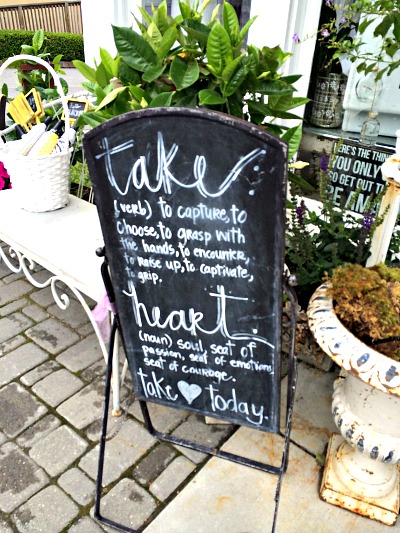 take
(verb) to capture, to
choose, to grasp with
the hands, to encounter,
to raise up, to captivate,
to grip.
heart.
(noun) soul, seat of
passion, seat of emotions,
seat of courage.
take ♥ today.
HERE'S THE THING
YOU ONLY
GO GET OUT